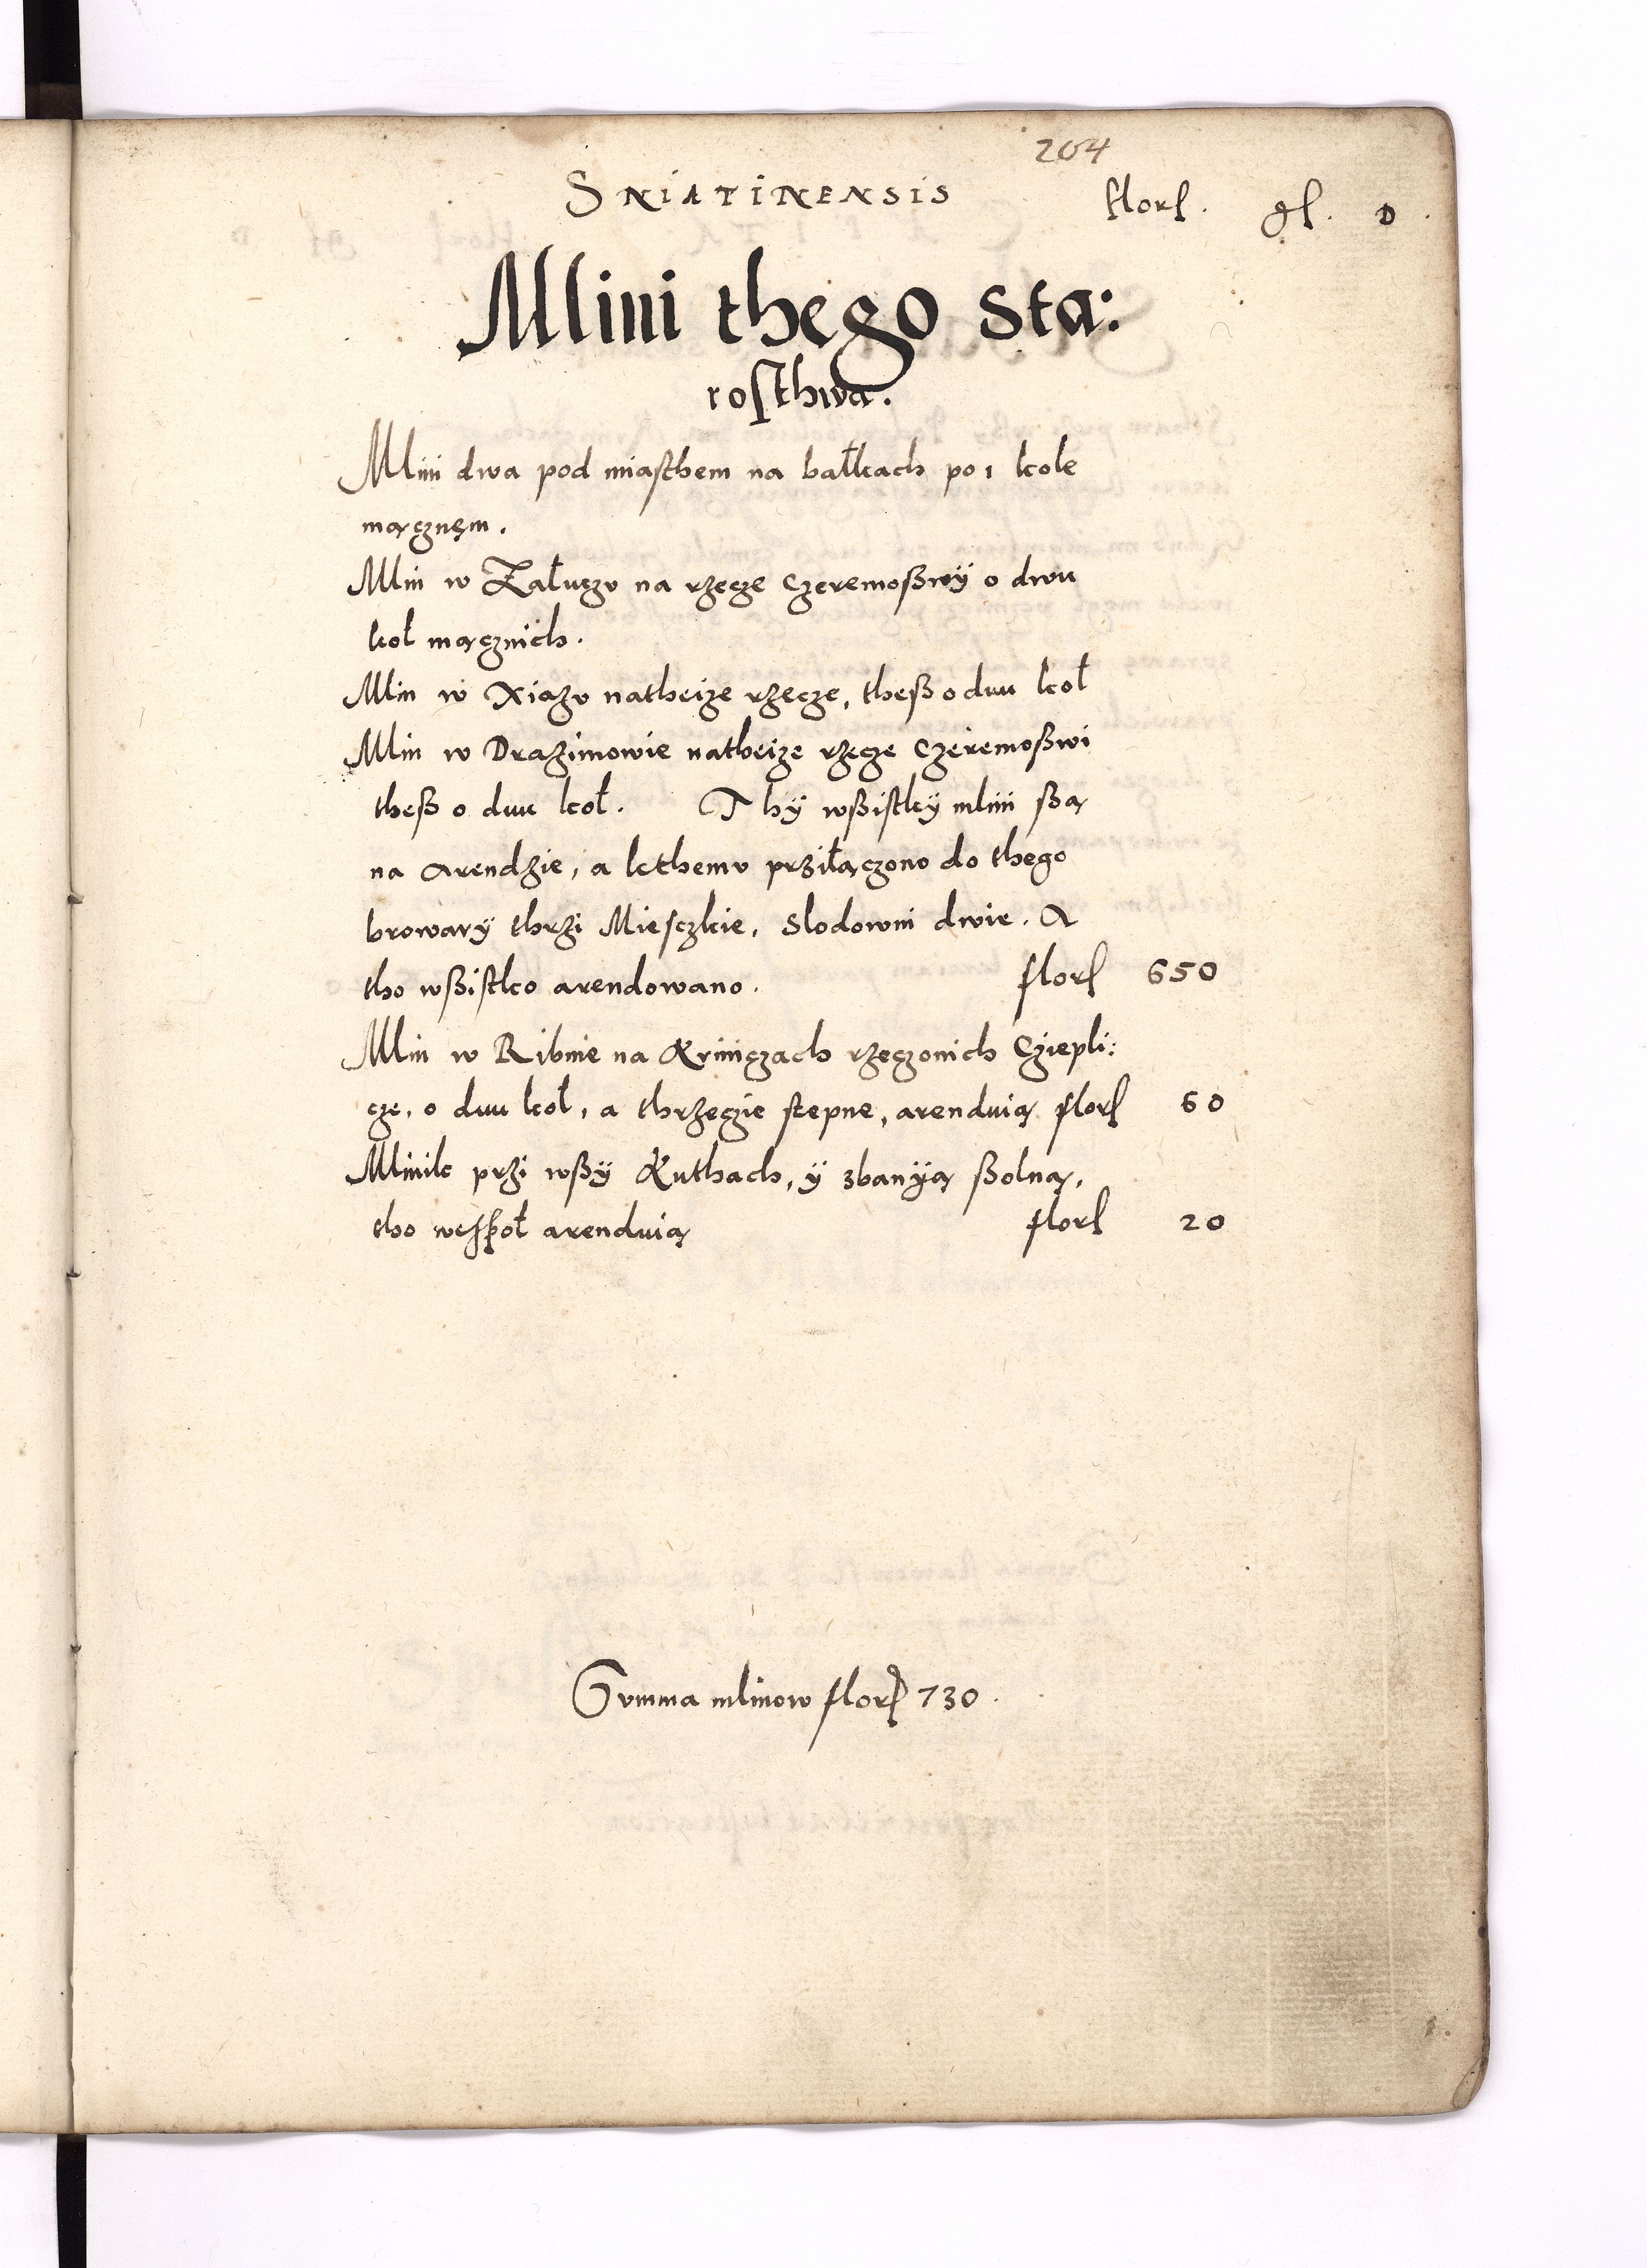 204
SNIATINENSIS florſ. gſ. D.
Mlini thego Sta:
roſthwa.
Mlini dwa pod miaſthem na bałkach po 1 kole
mącznęm.
Mlin w Załuczv na rzecze Czeremoßwÿ o dwu
koł mącznich.
Mlin w Xiązv natheize rzecze, theß o duu koł
Mlin w Drazimowie natheize rzecze Czeremoßwi
theß o duu koł. Thÿ wßiſtkÿ mlini ßą
na arendzie, a kthemv prziłączono do thego
browarÿ thrzi Mieſczkie, Slodowni dwie. A
tho wßiſtko arendowano. florſ 650
Mlin w Ribnie na Kriniczach rzeczonich Cziepli:
cze, o duu koł, a thrzeczie ſtepne, arenduią florſ 60
Mlinik przi wßÿ Kuthach, ÿ zbanÿą ßolną,
tho weſpoł arenduią florſ 20
Svmma mlinow florſ 730.